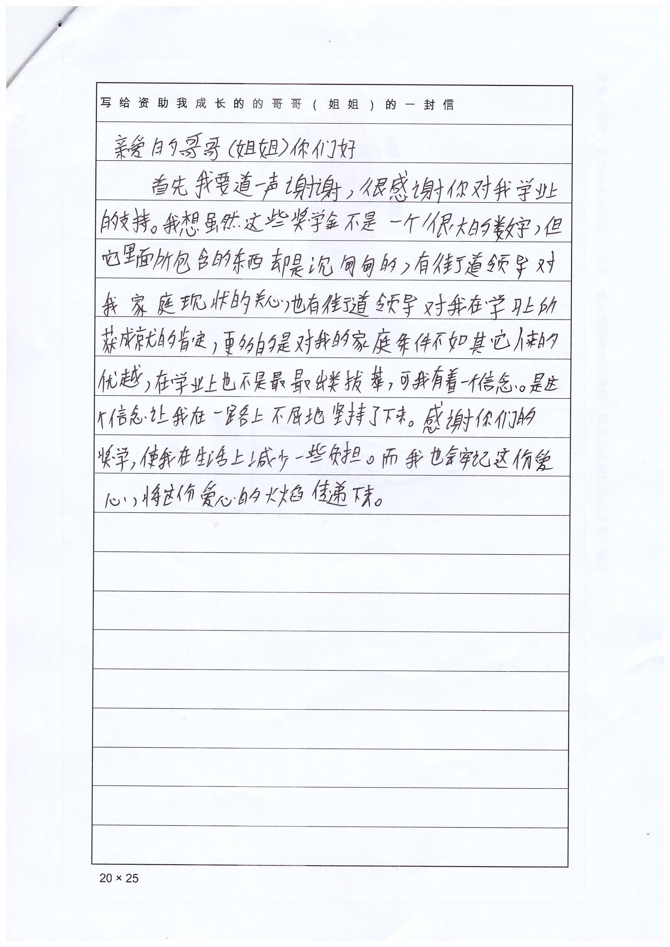 写给资助我成长的的哥哥（姐姐）的一封信
亲爱的哥哥（姐姐）你们好
首先我要道一声谢谢，很感谢你对我学业上
的支持。我想虽然这些奖学金不是一个很大的数字，但
它里面所包含的东西却是沉甸甸的，有街道领导对
我家庭现状的关心，也有街道领导对我在学习上所
获成就的肯定，更多的是对我的家庭条件不如其它人的
优越，在学业上也不是最最出类拔萃，可我有着一个信念。是这
个信念让我在一路上不屈地坚持了下来。感谢你们的
奖学，使我在生活上减少一些负担。而我也会牢记这份爱
心，将这份爱心的火焰传递下去。
20×25